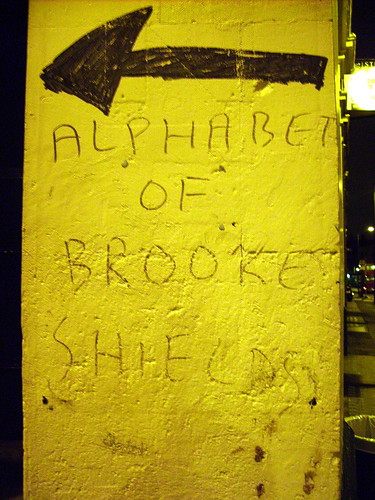 ALPHABET
OF
BROOKE
SHIELDS